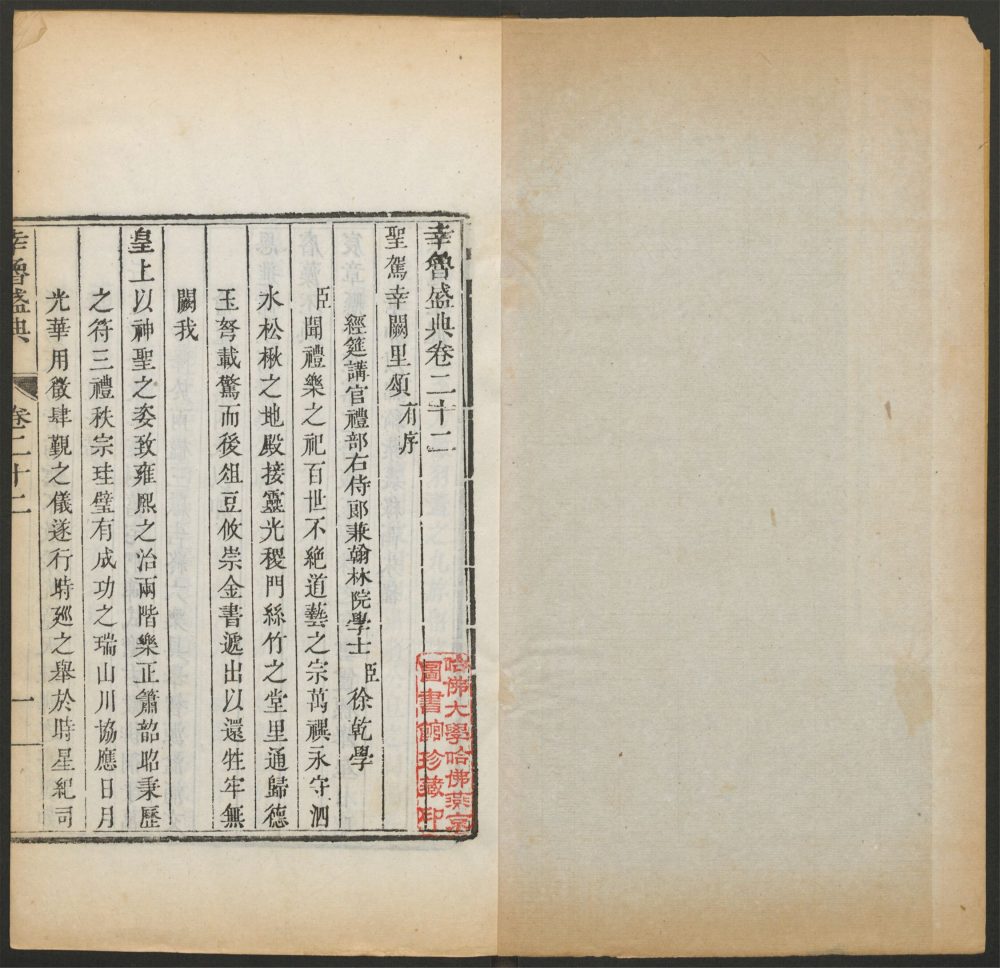 幸魯盛典卷二十二
聖駕幸闕里頌有序
經筵講官禮部右侍郎兼翰林院學士臣徐乾學
臣聞禮樂之祀百世不絶道藝之宗萬禩永守泗
水松楸之地殿接靈光稷門絲竹之堂里通歸德
玉弩載驚而後俎豆攸崇金書遞出以還牲牢無
闕我
皇上以神聖之姿致雍熙之治兩階樂正簫韶昭秉歷
之符三禮秩宗珪璧有成功之瑞山川協應日月
光華用徵肆覲之儀遂行時廵之舉於時星紀司
幸魯盛典
卷二十二
一
哈佛大學哈佛燕京
圖書館珍藏印